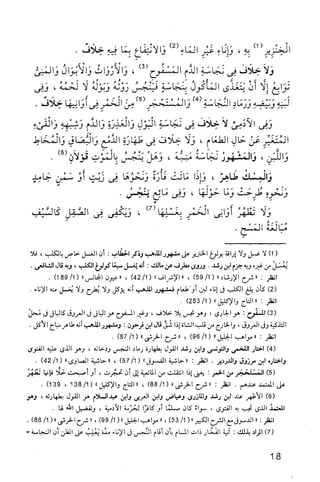 الْخِنْزِيرِ (1) بِهِ ، وَإِنَاءِ غَيْرِ الْمَاءِ (2) وَالِانْتِفَاعِ بِمَا فِيهِ خِلَافٌ .
وَلَا خِلَافَ فِي نَجَاسَةِ الدَّمِ الْمَسْفُوحِ (3) ، وَالْأَرْوَاثُ وَالْأَبْوَالُ وَالْمَنِيُّ
تَوَابِعُ إِلَّا أَنْ يَتَغَذَّى الْمَأْكُولُ بِنَجَاسَةٍ فَيَنْجُسُ رَوْثُهُ وَبَوْلُهُ لَا لَحْمُهُ ، وَفِي
لَبَنِهِ وَبَيْضِهِ وَرَمَادِ النَّجَاسَةِ (4) وَالْمُسْتَحْجِرِ (5) مِنَ الْخَمْرِ فِي أَوَانِيهَا خِلَافٌ .
وَفِي الْآدَمِيِّ لَا خِلَافَ فِي نَجَاسَةِ الْبَوْلِ وَالْعَذِرَةِ وَالدَّمِ وَشِبْهِهِ وَالْقَيْءِ
الْمُتَغَيِّرِ عَنْ حَالِ الطَّعَامِ ، وَلَا خِلَافَ فِي طَهَارَةِ الدَّمْعِ وَالْبُصَاقِ وَالْمُخَاطِ
وَاللَّبَنِ ، وَالْمَشْهُورُ نَجَاسَةُ مَيْتِهِ ، وَهَلْ يَنْجُسُ بِالْمَوْتِ قَوْلَانِ (6) .
وَالْمِسْكُ طَاهِرٌ ، وَإِذَا مَاتَتْ فَأْرَةٌ وَنَحْوُهَا فِي زَيْتٍ أَوْ سَمْنٍ جَامِدٍ
وَنَحْوِهِ طُرِحَتْ وَمَا حَوْلَهَا ، وَفِي مَائِعٍ يَنْجُسُ .
وَلَا تَطْهُرُ أَوَانِي الْخَمْرِ بِغَسْلِهَا (7) ، وَيَكْفِي فِي الصَّقِيلِ كَالسَّيْفِ
مُبَالَغَةُ الْمَسْحِ .
(1) لا غسل ولا إراقة بولوغ الخنزير على مشهور المذهب وذكر الحطاب : أن الغسل خاص بالكلب ، فلا
يُغسل من غيره وبه جزم ابن رشد . وروى مطرف عن مالك : أنه يغسل سبعًا كولوغ الكلب ، وبه قال الشافعي .
انظر : « شرح الإرشاد » (1/ 59) ، « الإشراف » (1/ 42) ، « عيون المجالس » (1/ 189) .
(2) كأن يلغ الكلب في إناء لبن أو طعام فمشهور المذهب أنه يؤكل ولا يُطرح ولا يُغسل منه الإناء .
انظر : « التاج والإكليل » (1/ 253) .
(3) المسفوح : هو الجاري ، وهو نجس بلا خلاف ، وغير المسفوح هو الباقي في العروق كالباقي في محل
التذكية وفي العروق ، والخارج من قلب الشاة إذا شُق قال ابن فرحون : ومشهور المذهب أنه طاهر مباح الأكل .
انظر : « مواهب الجليل » (1/ 96) ، « شرح الخرشي » (1/ 87) .
(4) اختار اللخمي والتونسي وابن رشد القول بطهارة رماد النجس ودخانه ، وهو الذي عليه الفتوى
واختاره ابن مرزوق والدردير . انظر : « حاشية الدسوقي » (1/ 57) ، « حاشية الصاوي » (1/ 42) .
(5) المستحجر من الخمر : يعني إذا انتقلت من المائعية إلى أن تحجرت ، أو أصبحت خلًّا فإنها تطهُر
على المعتمد عندهم . انظر : « شرح الخرشي » (1/ 88) ، « التاج والإكليل » (1/ 138 ، 139) .
(6) الأظهر عند ابن رشد والمازري وعياض وابن العربي وابن عبد السلام هو القول بطهارته ، وهو
المعتمد الذي تجب به الفتوى ، سواءٌ كان مسلمًا أو كافرًا لحُرمة الآدمية ، وتفضيل الله لها .
انظر : « الدسوقي مع الشرح الكبير » (1/ 53) ، « مواهب الجليل » (1/ 99) ، « شرح الخرشي » (1/ 88) .
(7) المراد بذلك : آنية الفَخَّار ذات المسام بأن أقام النجس في الإناء مدة يَغْلِبُ على الظن أن النجاسة =
18